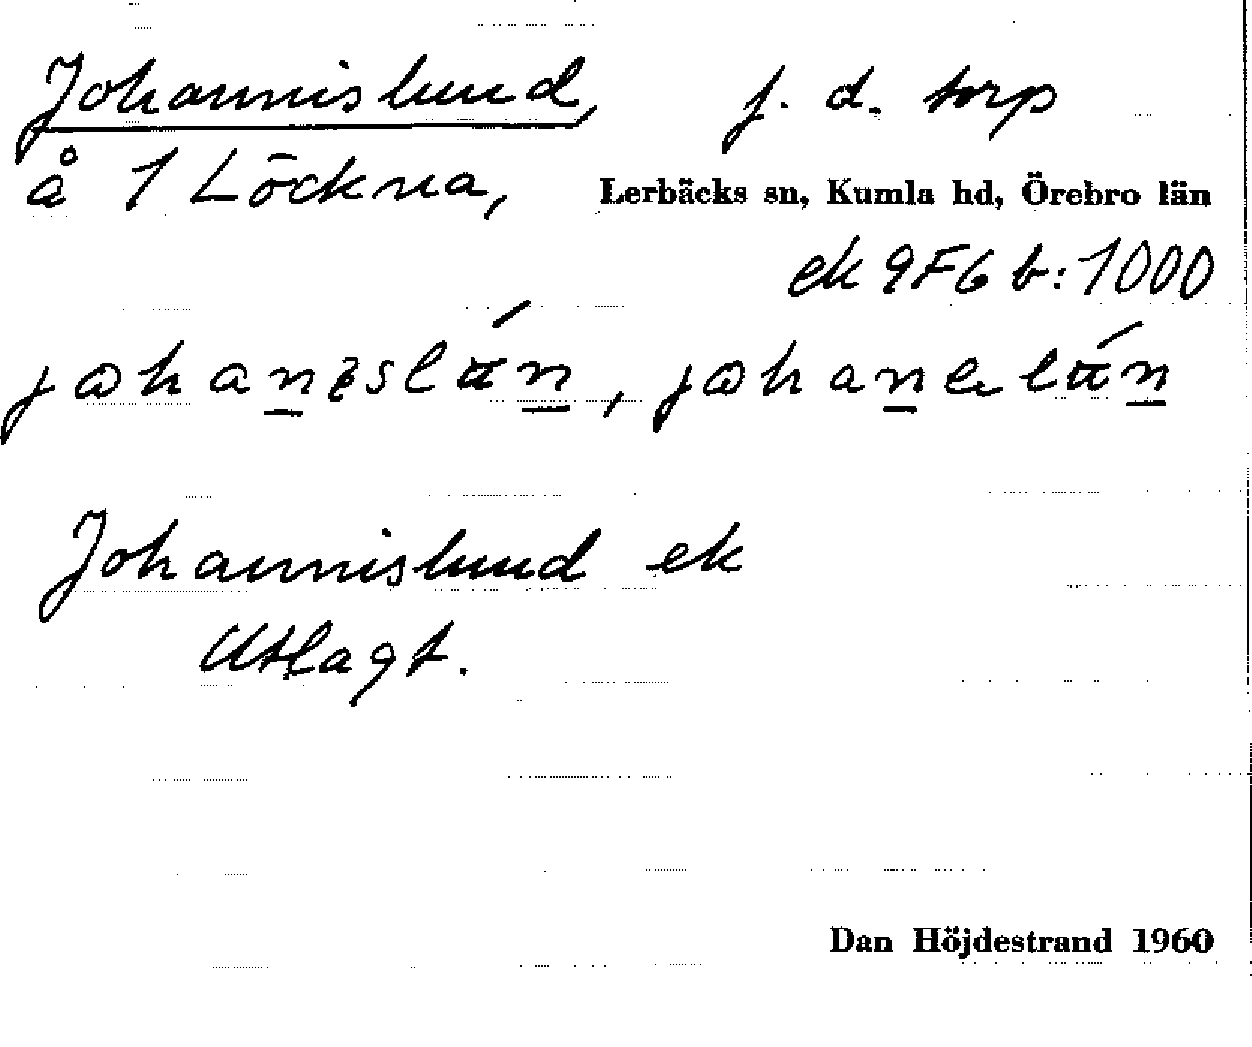 Johannislund, f. d. torp
å 1 Löckna, Lerbäcks sn, Kumla hd, Örebro län
ek 9F6 b:1000
Johannislund ek
Utlagt.
Dan Höjdestrand 1960